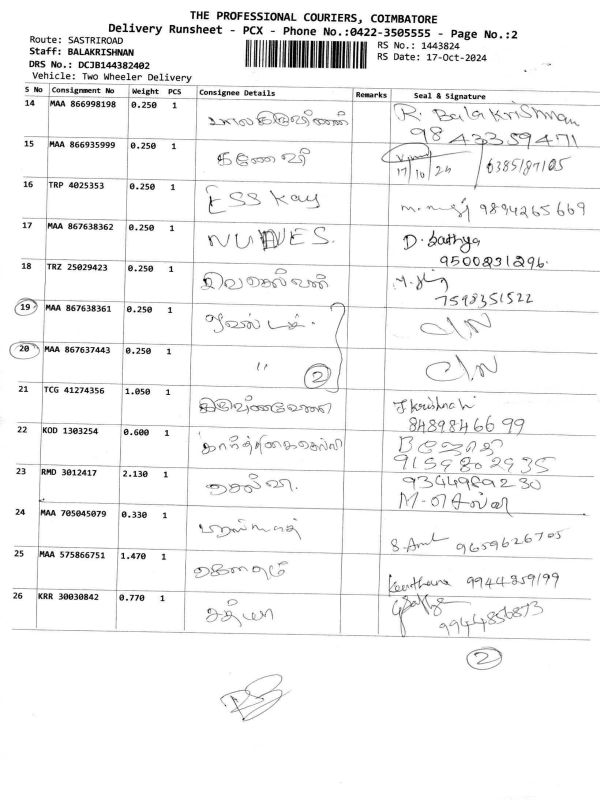 THE PROFESSIONAL COURIERS, COIMBATORE
Delivery Runsheet - PCX - Phone No.:0422-3505555 - Page No.:2
Route: SASTRIROAD
Staff: BALAKRISHNAN
DRS No.: DCJB144382402
Vehicle: Two Wheeler Delivery
RS No.: 1443824
RS Date: 17-Oct-2024
S No Consignment No Weight PCS Consignee Details Remarks Seal & Signature
14 MAA 866998198 0.250 1 பாலகிருஷ்ணன் R. Balakrishnan
9843359471
15 MAA 866935999 0.250 1 17/10/24 6385187105
16 TRP 4025353 0.250 1 ESS Kay 9894265669
17 MAA 867638362 0.250 1 D. Sathya
9500231296
18 TRZ 25029423 0.250 1 7598351522
19 MAA 867638361 0.250 1 C/N
20 MAA 867637443 0.250 1 " 2 C/N
21 TCG 41274356 1.050 1 8489846699
22 KOD 1303254 0.600 1 கார்த்திகைசெல்வி
9159802935
23 RMD 3012417 2.130 1 செல்வி 9344989230
M-செல்வி
24 MAA 705045079 0.330 1 9659626705
25 MAA 575866751 1.470 1 Keerthana 9944259199
26 KRR 30030842 0.770 1 சத்யா 9944856873
2